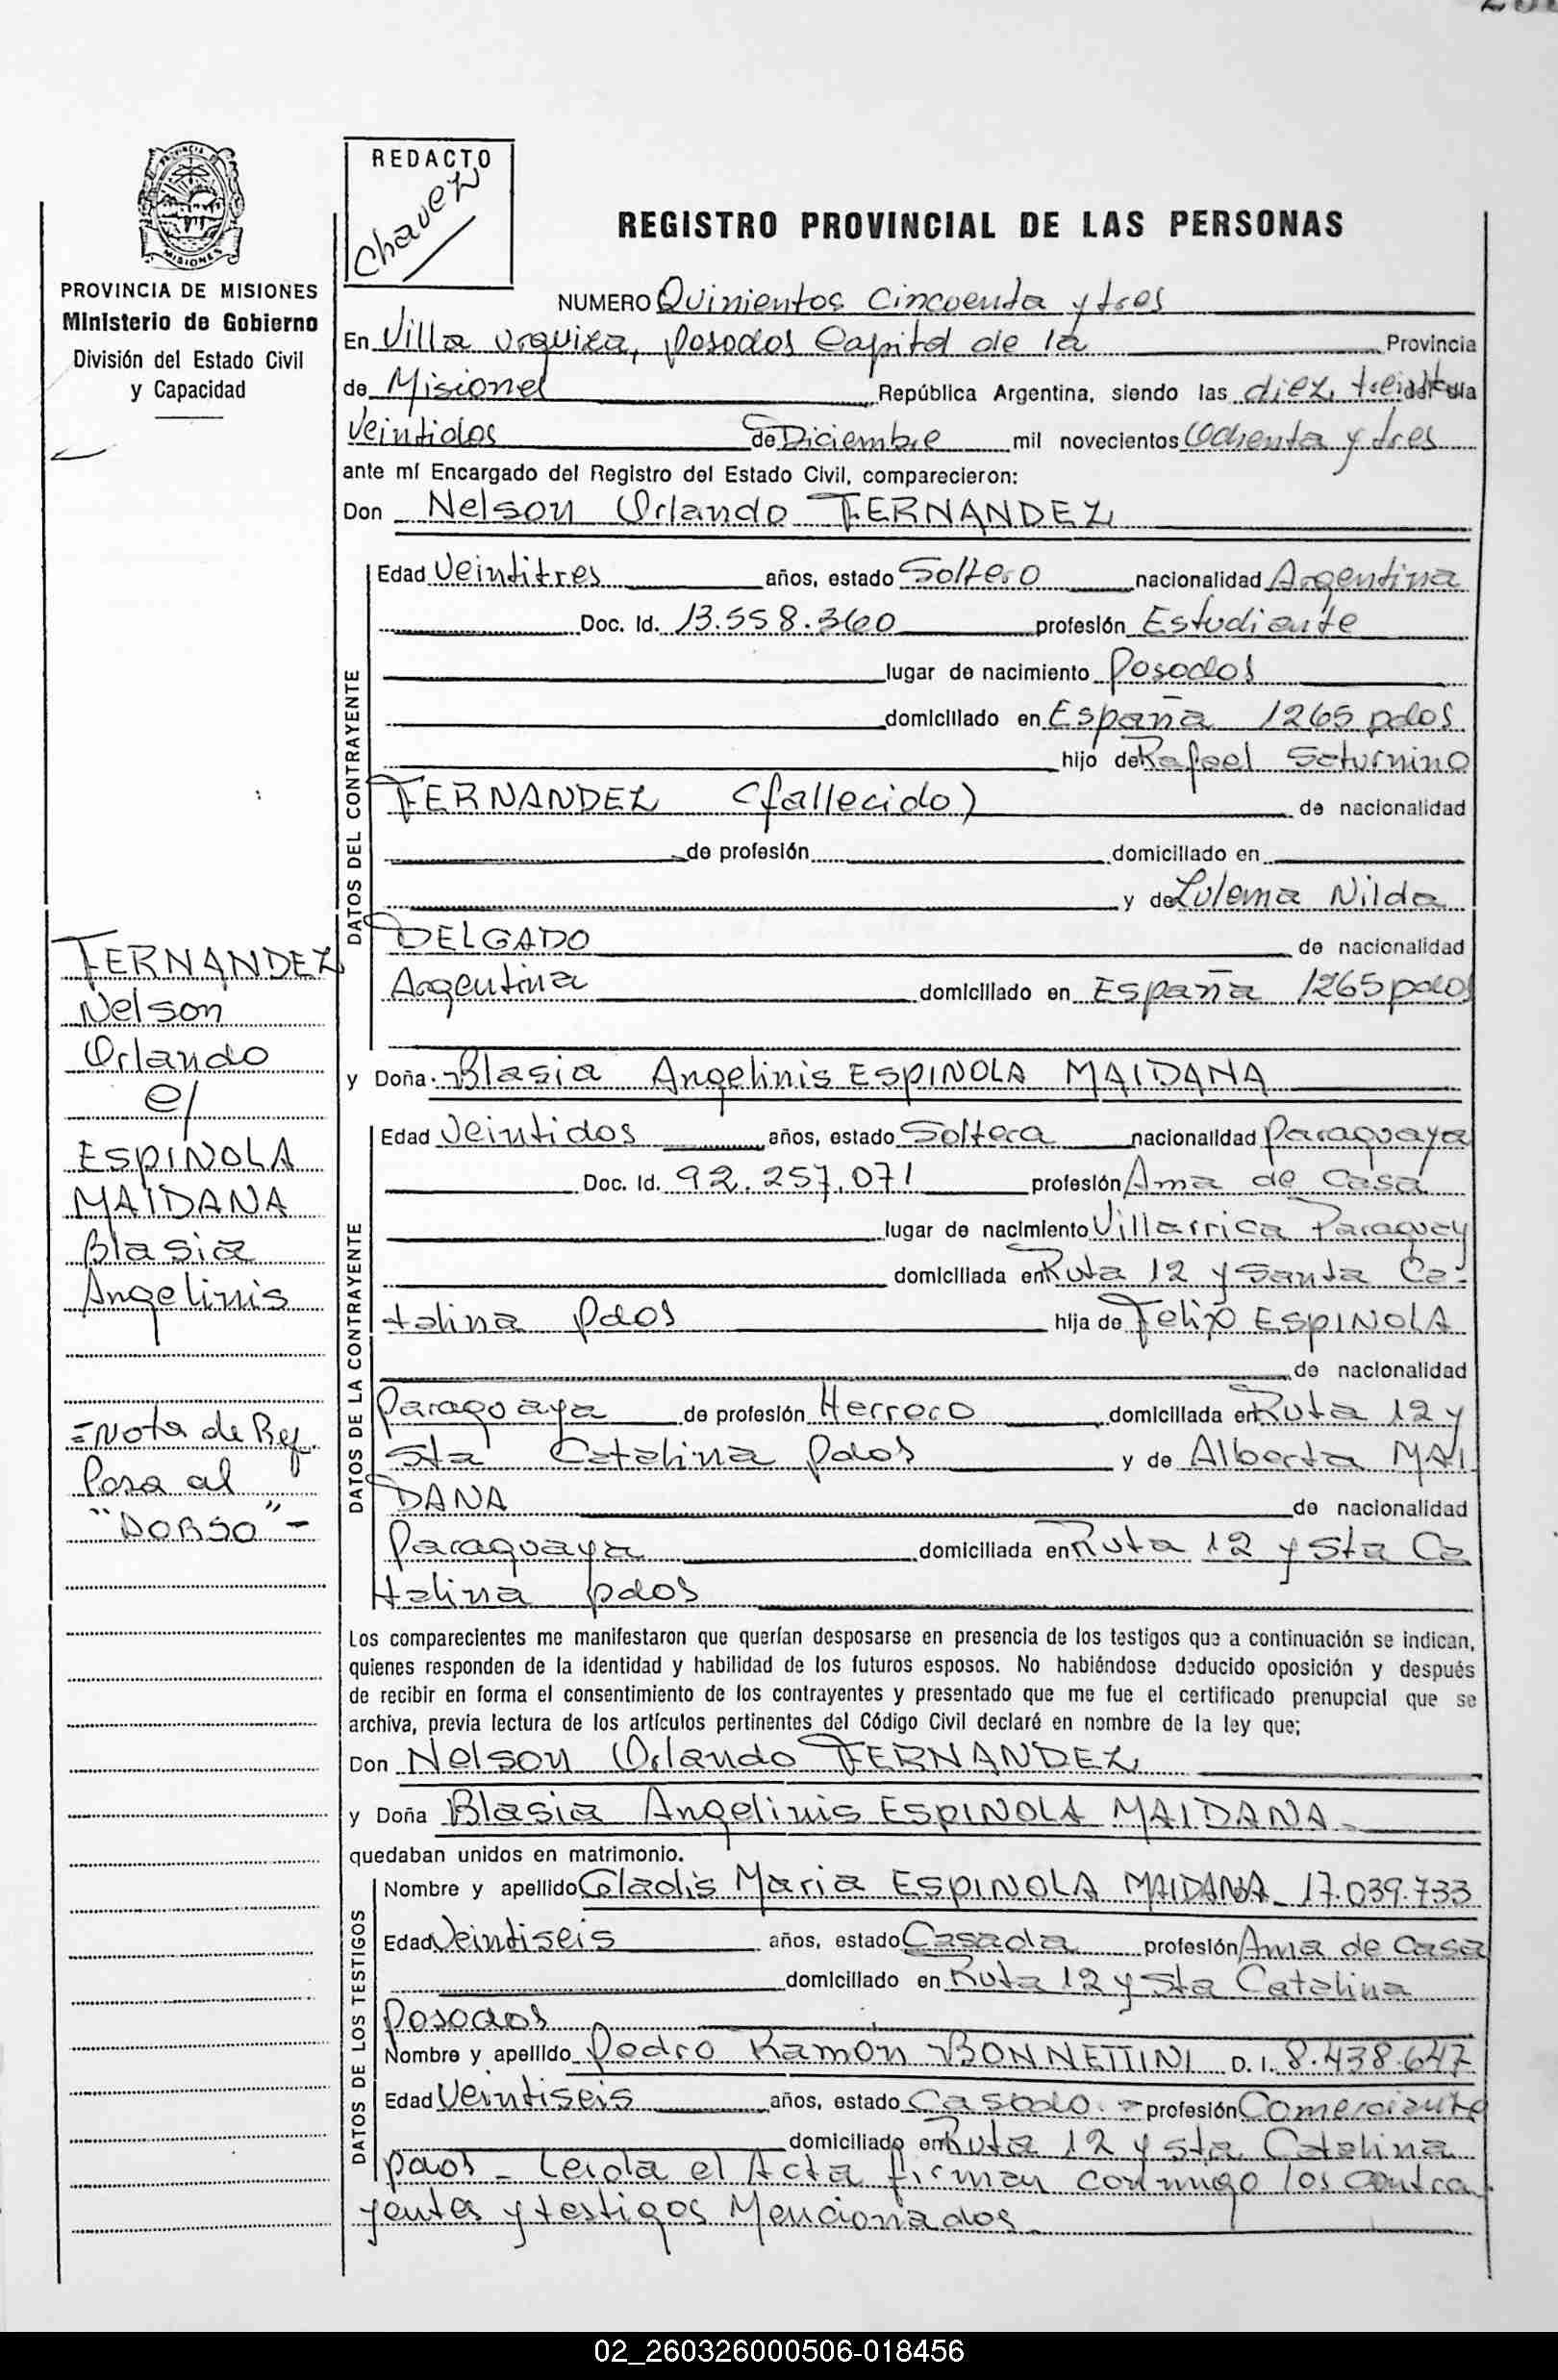 REDACTO
Chavez
PROVINCIA DE MISIONES
Ministerio de Gobierno
División del Estado Civil
y Capacidad
REGISTRO PROVINCIAL DE LAS PERSONAS
NUMERO Quinientos Cincuenta y tres
En Villa Urquiza, Posadas Capital de la Provincia
de Misiones República Argentina, siendo las diez, treinta del día
Veintidos de Diciembre mil novecientos Ochenta y tres
ante mí Encargado del Registro del Estado Civil, comparecieron:
Don Nelson Orlando FERNANDEZ
DATOS DEL CONTRAYENTE
Edad Veintitres años, estado Soltero nacionalidad Argentina
Doc. Id. 13.558.360 profesión Estudiante
lugar de nacimiento Posadas
domiciliado en España 1265 pdas
hijo de Rafael Saturnino
FERNANDEZ (fallecido) de nacionalidad
de profesión domiciliado en
y de Zulema Nilda
DELGADO de nacionalidad
Argentina domiciliado en España 1265 pdas
y Doña Blasia Angelinis ESPINOLA MAIDANA
DATOS DE LA CONTRAYENTE
Edad Veintidos años, estado Soltera nacionalidad Paraguaya
Doc. Id. 92.257.071 profesión Ama de Casa
lugar de nacimiento Villarrica Paraguay
domiciliada en Ruta 12 y Santa Ca-
talina Pdas hija de Felix ESPINOLA
de nacionalidad
Paraguaya de profesión Herrero domiciliada en Ruta 12 y
Sta Catalina Pdas y de Alberta MAI
DANA de nacionalidad
Paraguaya domiciliada en Ruta 12 y Sta Ca
talina pdas
Los comparecientes me manifestaron que querían desposarse en presencia de los testigos que a continuación se indican,
quienes responden de la identidad y habilidad de los futuros esposos. No habiéndose deducido oposición y después
de recibir en forma el consentimiento de los contrayentes y presentado que me fue el certificado prenupcial que se
archiva, previa lectura de los artículos pertinentes del Código Civil declaré en nombre de la ley que;
Don Nelson Orlando FERNANDEZ
y Doña Blasia Angelinis ESPINOLA MAIDANA
quedaban unidos en matrimonio.
DATOS DE LOS TESTIGOS
Nombre y apellido Gladis Maria ESPINOLA MAIDANA 17.039.733
Edad Veintiseis años, estado Casada profesión Ama de Casa
domiciliado en Ruta 12 y Sta Catalina
Posadas
Nombre y apellido Pedro Ramón BONNETTINI D.I. 8.438.647
Edad Veintiseis años, estado Casado.= profesión Comerciante
domiciliado en Ruta 12 y Sta Catalina
pdas - Leida el Acta firman conmigo los contra
yentes y testigos Mencionados
FERNANDEZ
Nelson
Orlando
c/
ESPINOLA
MAIDANA
Blasia
Angelinis
=Nota de Ref.
Pasa al
"DORSO"-
02_260326000506-018456